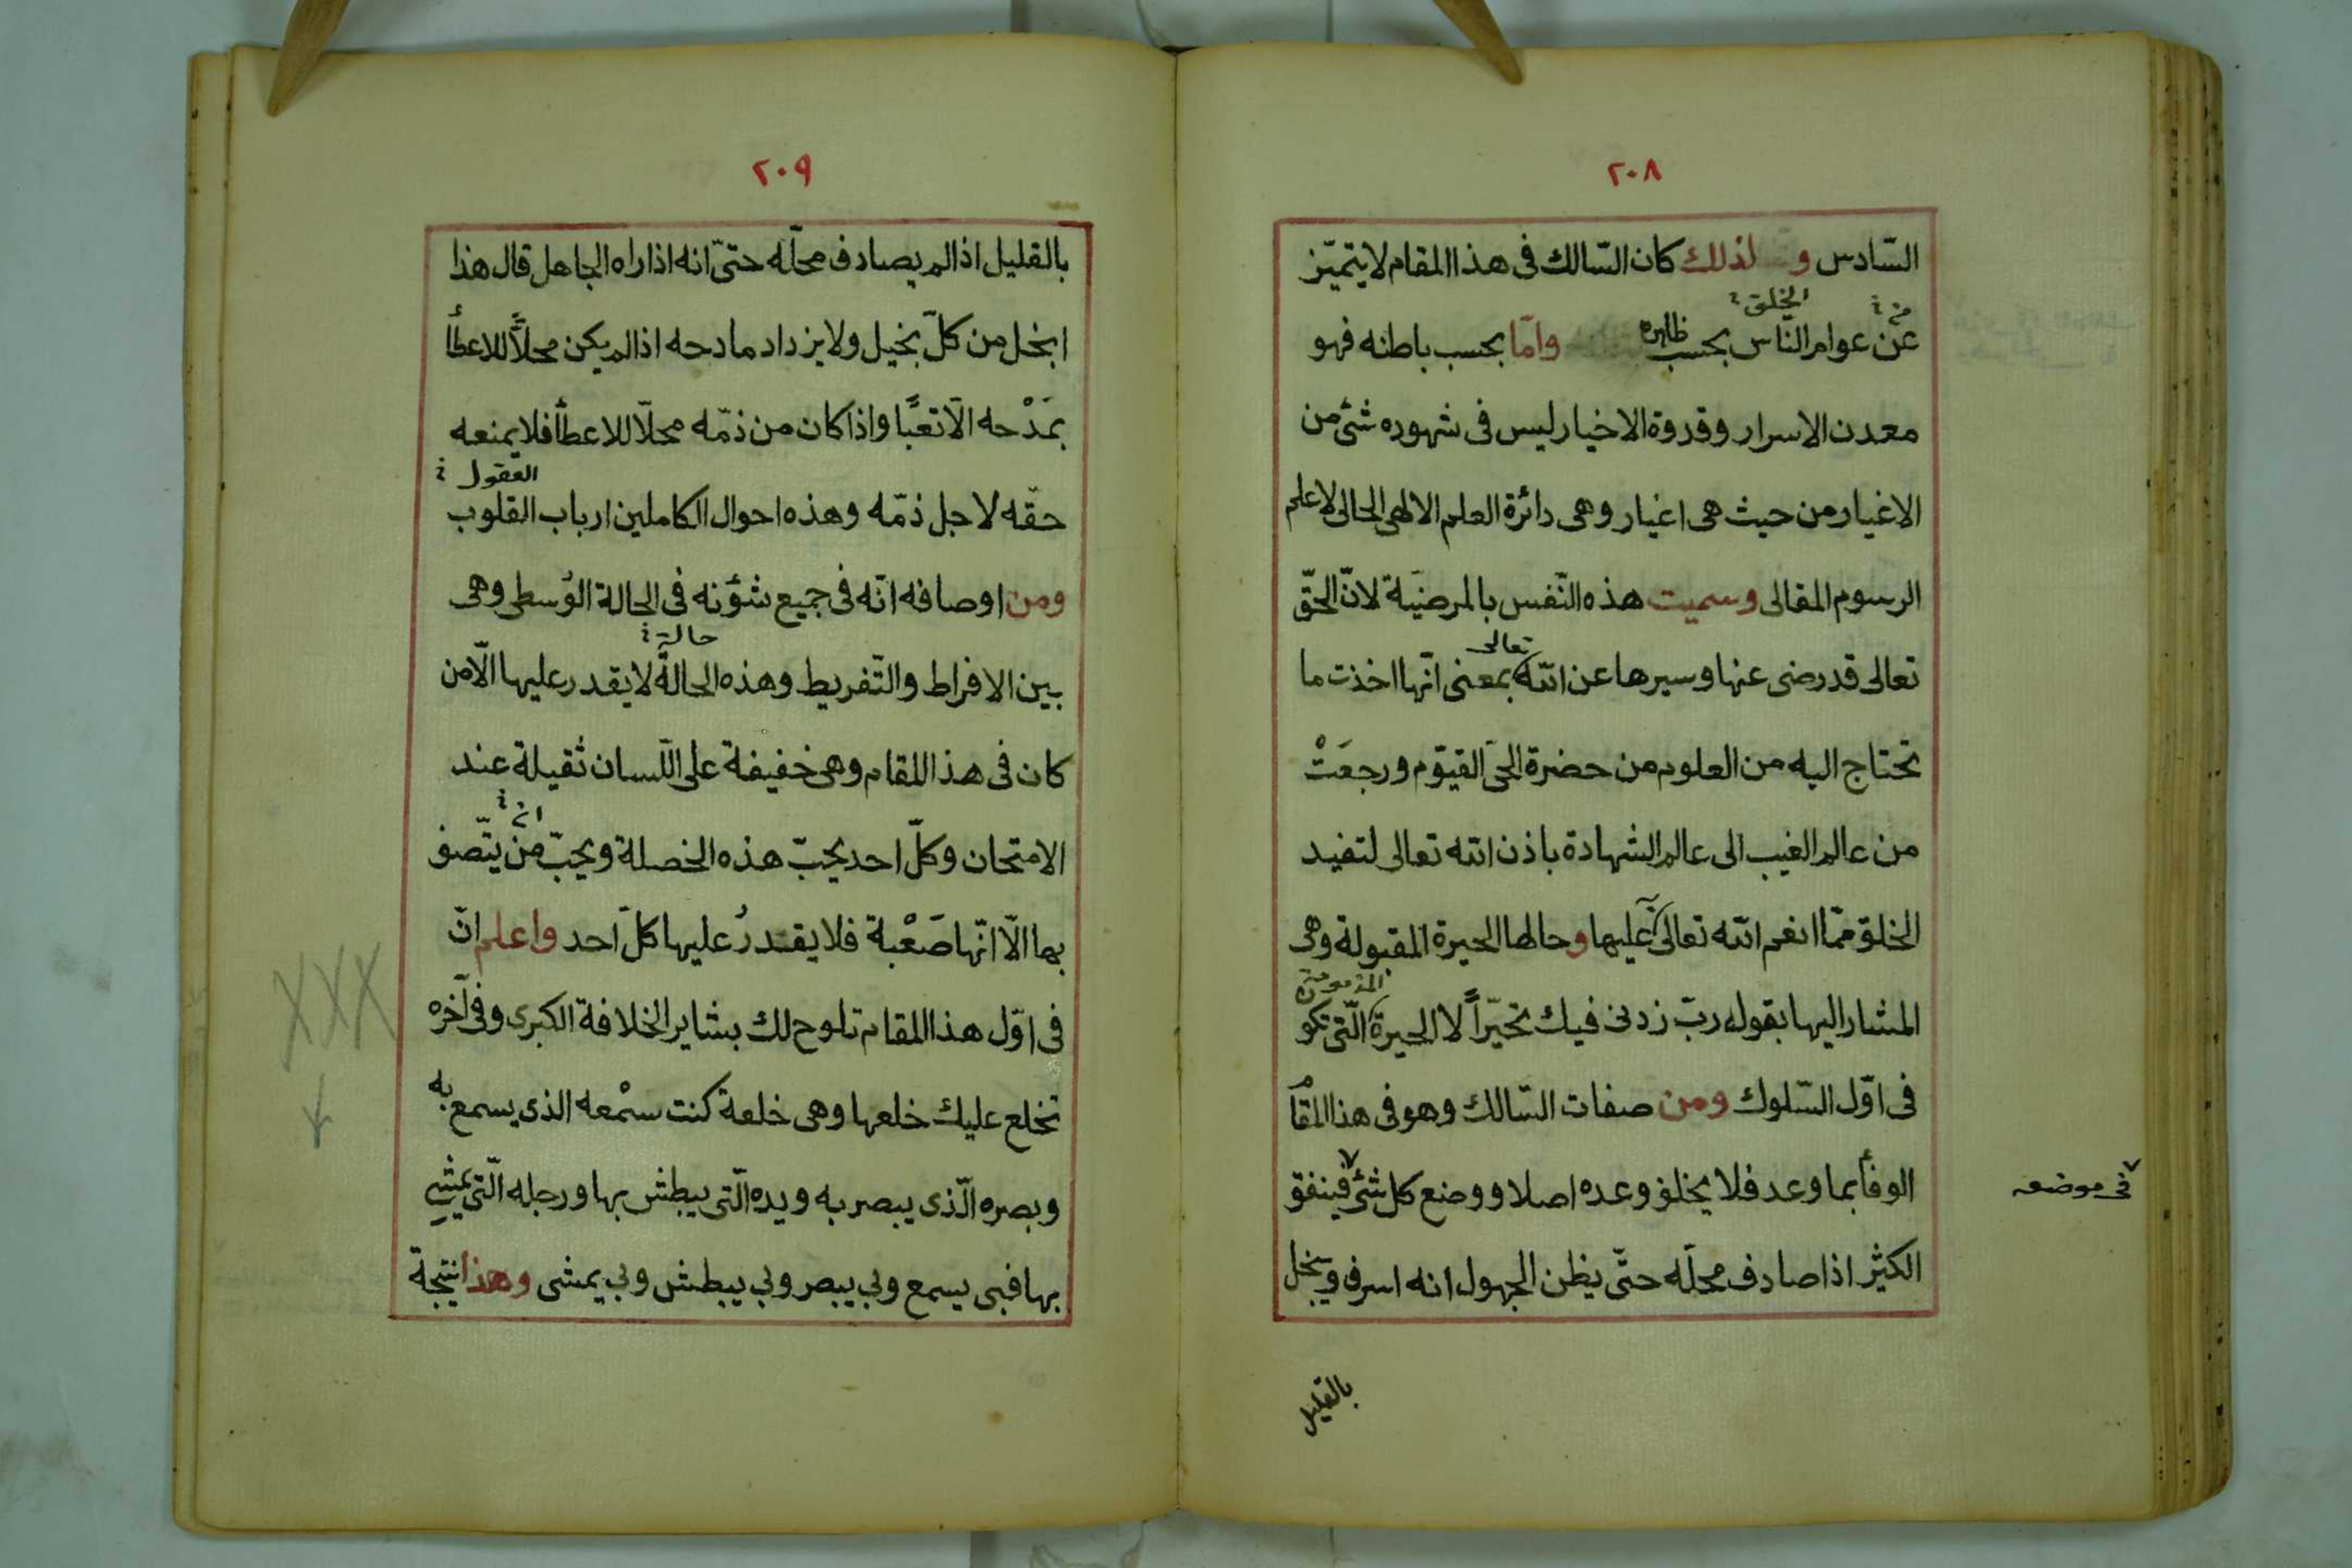 ٢٠٨
السّادس ولذلك كان السّالك فى هذا المقام لايتميّز
الخلق
عن عوام النّاس بحسب ظاهره وامّا بحسب باطنه فهو
معدن الاسرار وقدوة الاخيار ليس فى شهوده شئ من
الاغيار من حيث هى اغيار وهى دائرة العلم الالهى الحالى لاعلم
الرسوم المقالى وسميت هذه النّفس بالمرضيّة لانّ الحقّ
تعالى
تعالى قد رضى عنها وسيرها عن الله بمعنى انّها اخذت ما
تحتاج اليه من العلوم من حضرة الحىّ القيّوم ورجعَتْ
من عالم الغيب الى عالم الشهادة باذن الله تعالى لتفيد
الخلق ممّا انعم الله تعالى عليها وحالها الحيرة المقبولة وهى
المذمومة
المشار اليها بقوله ربّ زدنى فيك تحيّراً لا الحيرة الّتى تكو
فى اوّل السّلوك ومن صفات السّالك وهو فى هذا المقام
الوفأ بما وعد فلا يخلف وعده اصلا ووضع كل شئ فينفق
فى موضعه
الكثير اذا صادف محلّه حتّى يظن الجهول انه اسرف ويبخل
بالقليل
٢٠٩
بالقليل اذا لم يصادف محلّه حتىّ انه اذا راه الجاهل قال هذا
ابخل من كلّ بخيل ولا يزداد مادحه اذا لم يكن محلّاً للاعطأ
بمَدْحه الّا تعبًا واذا كان من ذمّه محلّا للاعطأ فلا يمنعه
العقول
حقّه لاجل ذمّه وهذه احوال الكاملين ارباب القلوب
ومن اوصافه انّه فى جميع شؤنه فى الحالة الوُسطى وهى
حالة
بين الافراط والتّفريط وهذه الحالة لا يقدر عليها الّا من
كان فى هذا المقام وهى خفيفة على اللّسان ثقيلة عند
الامتحان وكلّ احد يحبّ هذه الخصلة ويحبّ من يتّصف
بها الّا انّها صَعْبة فلا يقدرُ عليها كلّ احد واعلم انّ
فى اوّل هذا المقام تلوح لك بشاير الخلافة الكبرى وفى آخره
تخلع عليك خلعها وهى خلعة كنت سمْعه الذى يسمع به
وبصره الّذى يبصر به ويده الّتى يبطش بها ورجله الّتى يمشى
بها فبى يسمع وبى يبصر وبى يبطش وبى يمشى وهذا نتيجة